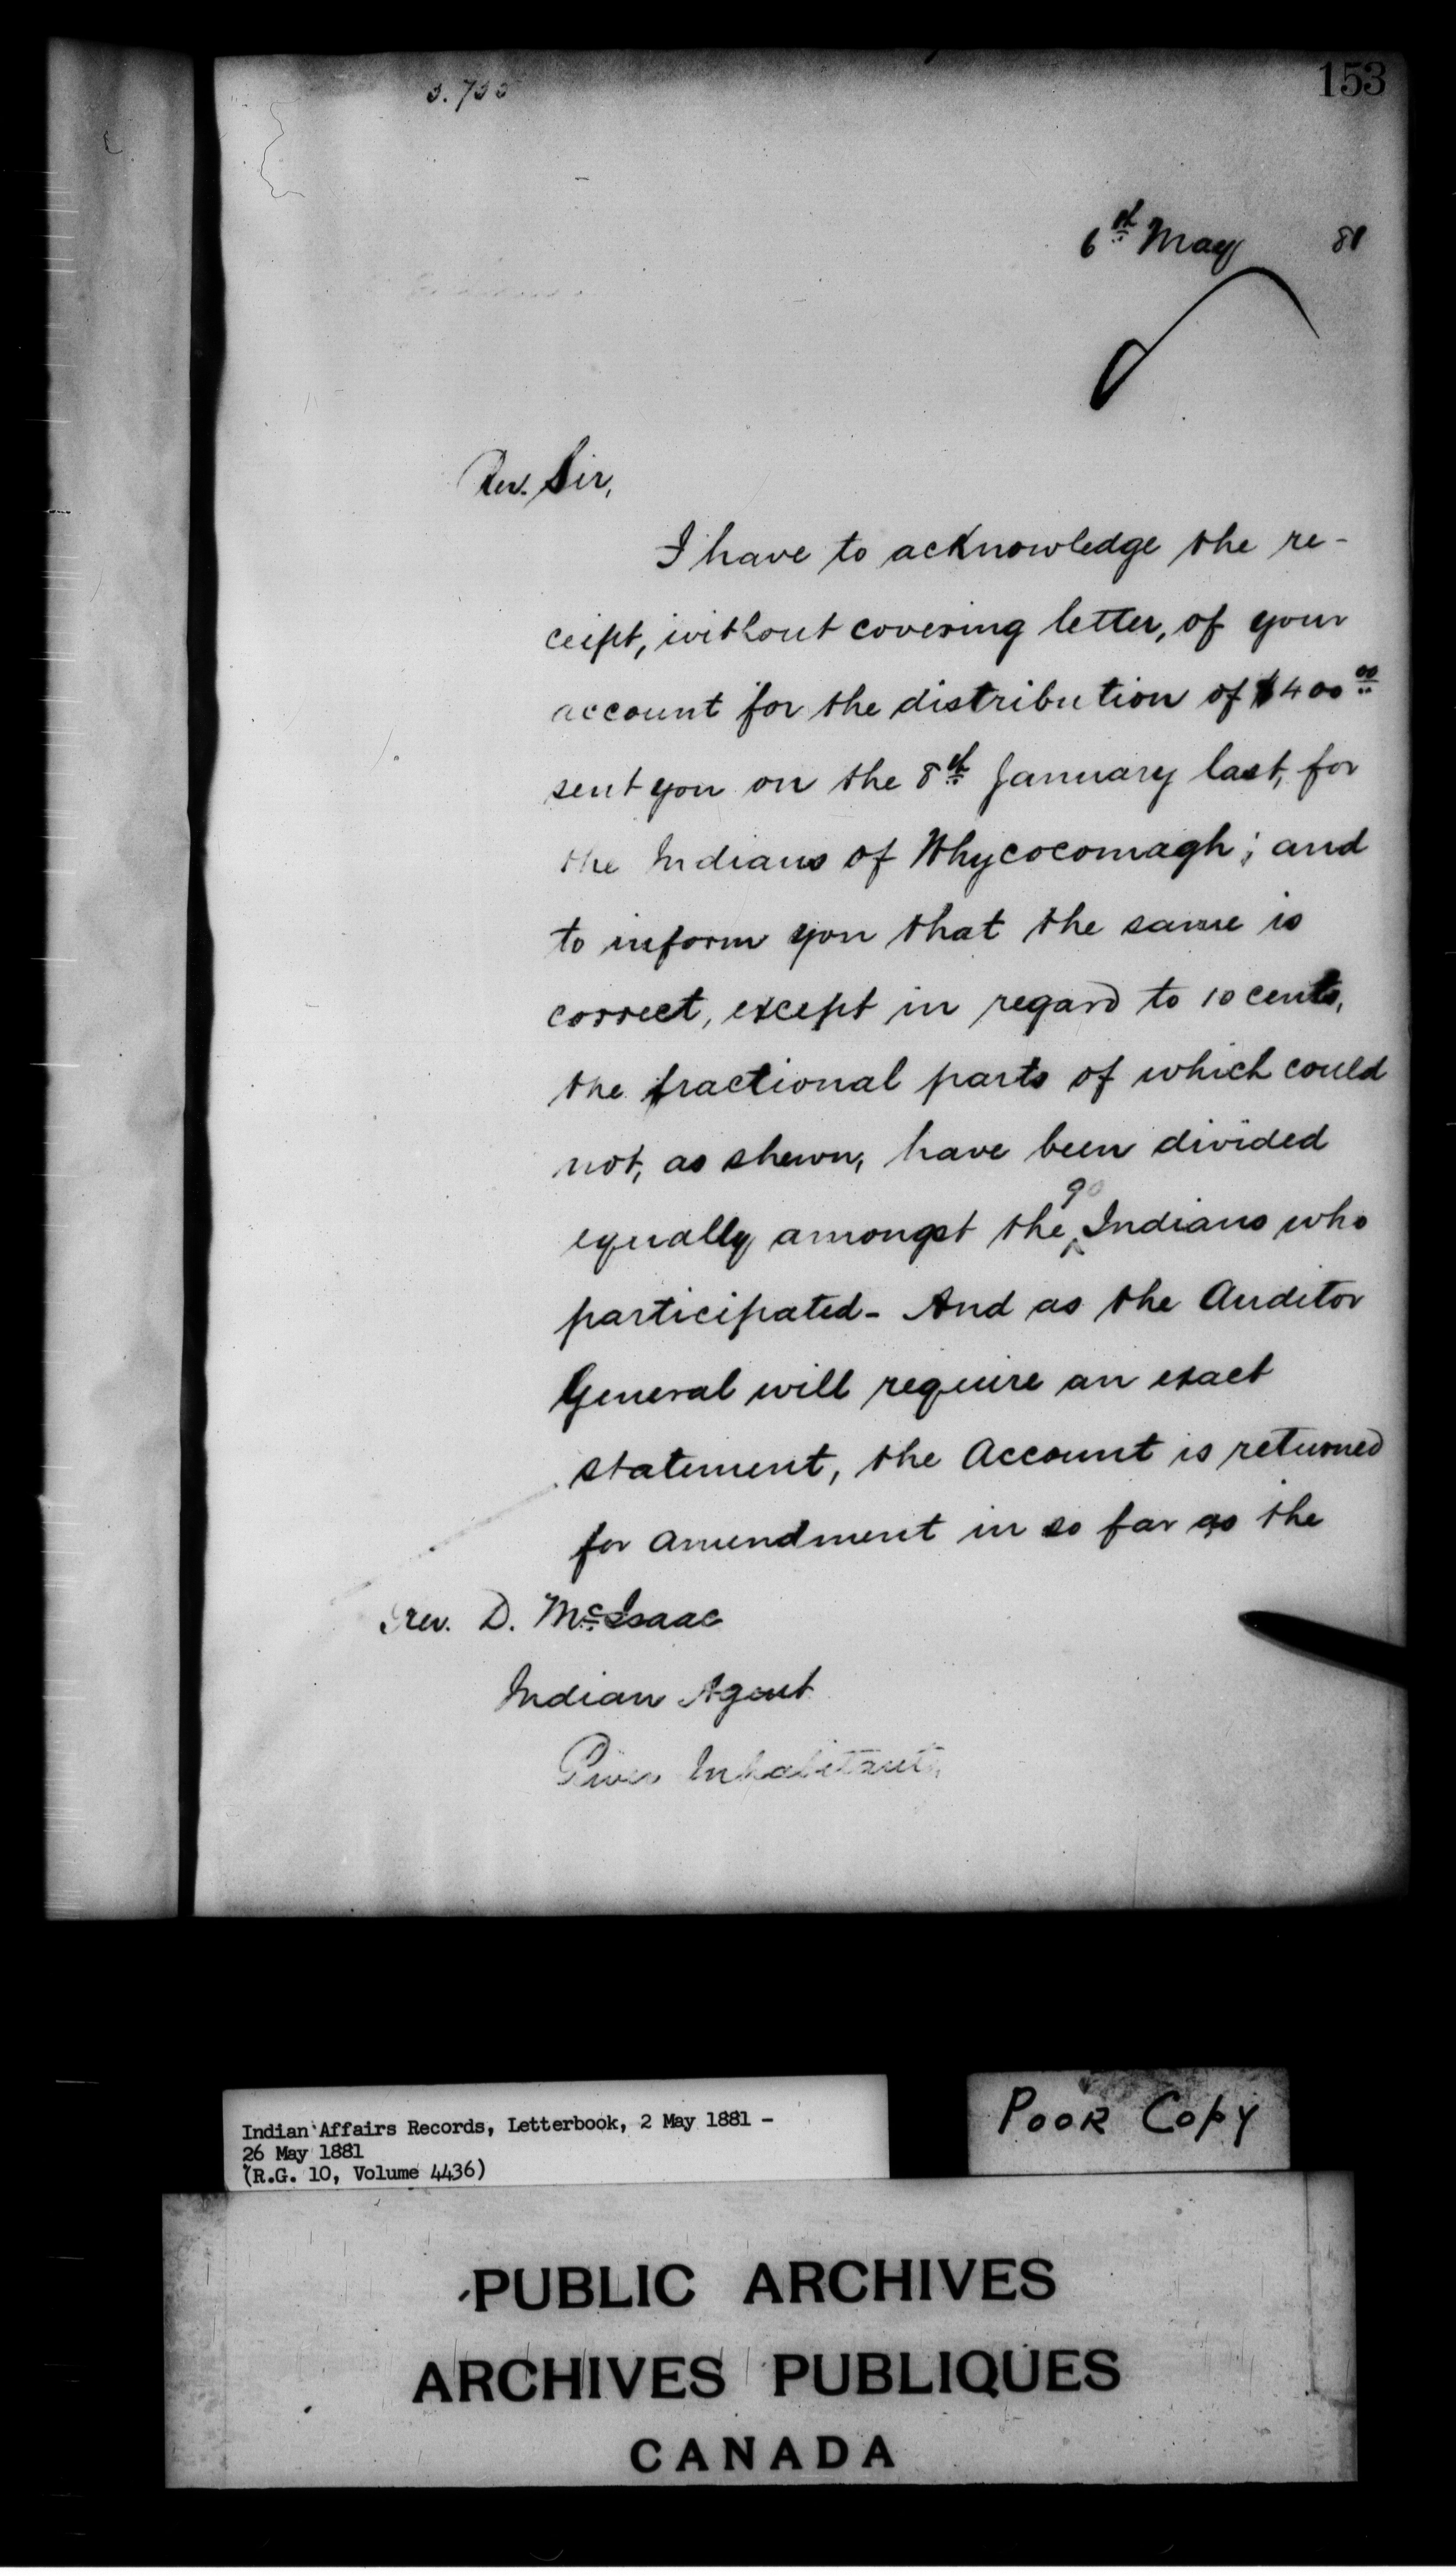 153
6th May 81
Rev. Sir,
I have to acknowledge the re-
ceipt, without covering letter, of your
account for the distribution of $400 00
sent you on the 8th January last, for
the Indians of Whycocomagh; and
to inform you that the same is
correct, except in regard to 10 cents,
the fractional parts of which could
not, as shewn, have been divided
equally amongst the 90 Indians who
participated - And as the Auditor
General will require an exact
statement, the Account is returned
for amendment in so far as the
Rev. D. McIsaac
Indian Agent
River Inhabitants
Indian Affairs Records, Letterbook, 2 May 1881 -
26 May 1881
(R.G. 10, Volume 4436)
POOR COPY
PUBLIC ARCHIVES
ARCHIVES PUBLIQUES
CANADA